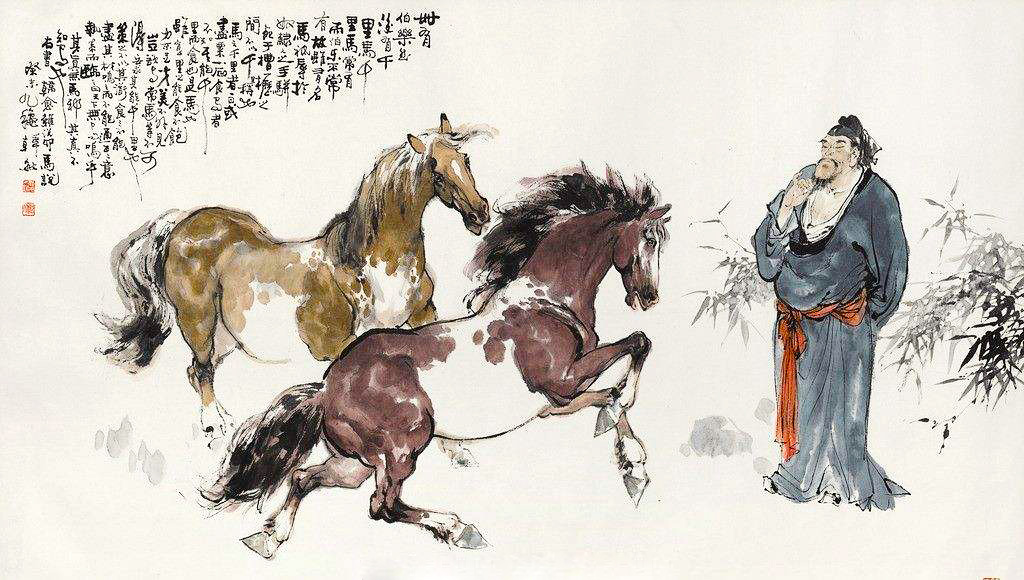 世有
伯樂然
後有千
里馬千
里馬常有
而伯乐不常
有故雖有名
馬祇辱於
奴隸之手駢
死于槽櫪之
間不以千稱也
馬之千里者一食或
盡粟一石食馬者
不知其能千
里而食也是馬也
雖有千里之能食不飽
力不足才美不外見
且欲與常馬等不可
得安求其能千里也
策之不以其道食之不能
盡其材鳴而不能通其意
執策而臨之曰天下無馬嗚乎
其真無馬邪其真不
知馬也
右書韓愈雜說四馬說
癸未九穐韓敏